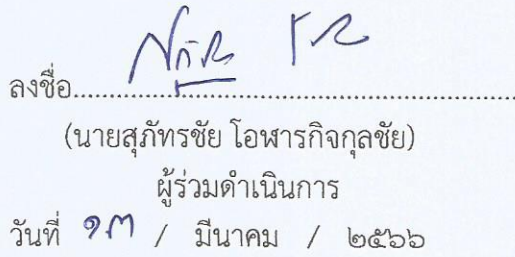 ลงชื่อ........................................................................
(นายสุภัทรชัย โอฬารกิจกุลชัย)
ผู้ร่วมดำเนินการ
วันที่ ๑๓ / มีนาคม / ๒๕๖๖